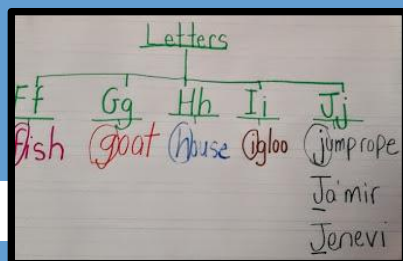 Letters
Ff Gg Hh Ii Jj
fish goat house igloo jumprope
Ja'mir
Jenevi